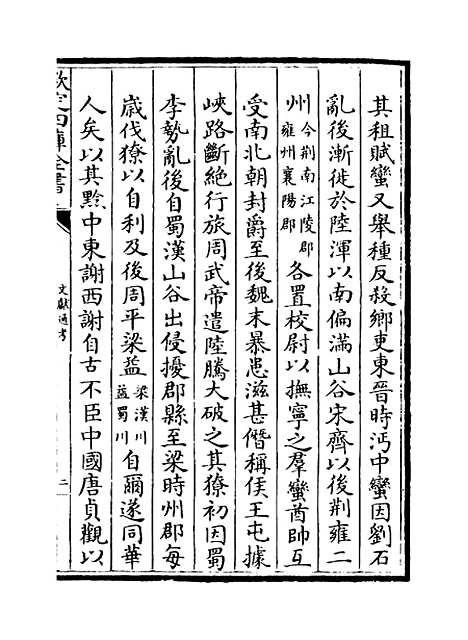 其租賦蠻又舉種反殺鄉吏東晉時沔中蠻因劉石
亂後漸徙於陸渾以南偏滿山谷宋齊以後荆雍二
州今荆南江陵郡雍州襄陽郡各置校尉以撫寧之羣蠻酋帥互
受南北朝封爵至後魏末暴患滋甚僭稱侯王屯據
峽路斷絶行旅周武帝遣陸騰大破之其獠初因蜀
李勢亂後自蜀漢山谷出侵擾郡縣至梁時州郡每
歲伐獠以自利及後周平梁益梁漢川益蜀川自爾遂同華
人矣以其黔中東謝西謝自古不臣中國唐貞觀以
欽定四庫全書
文獻通考
二